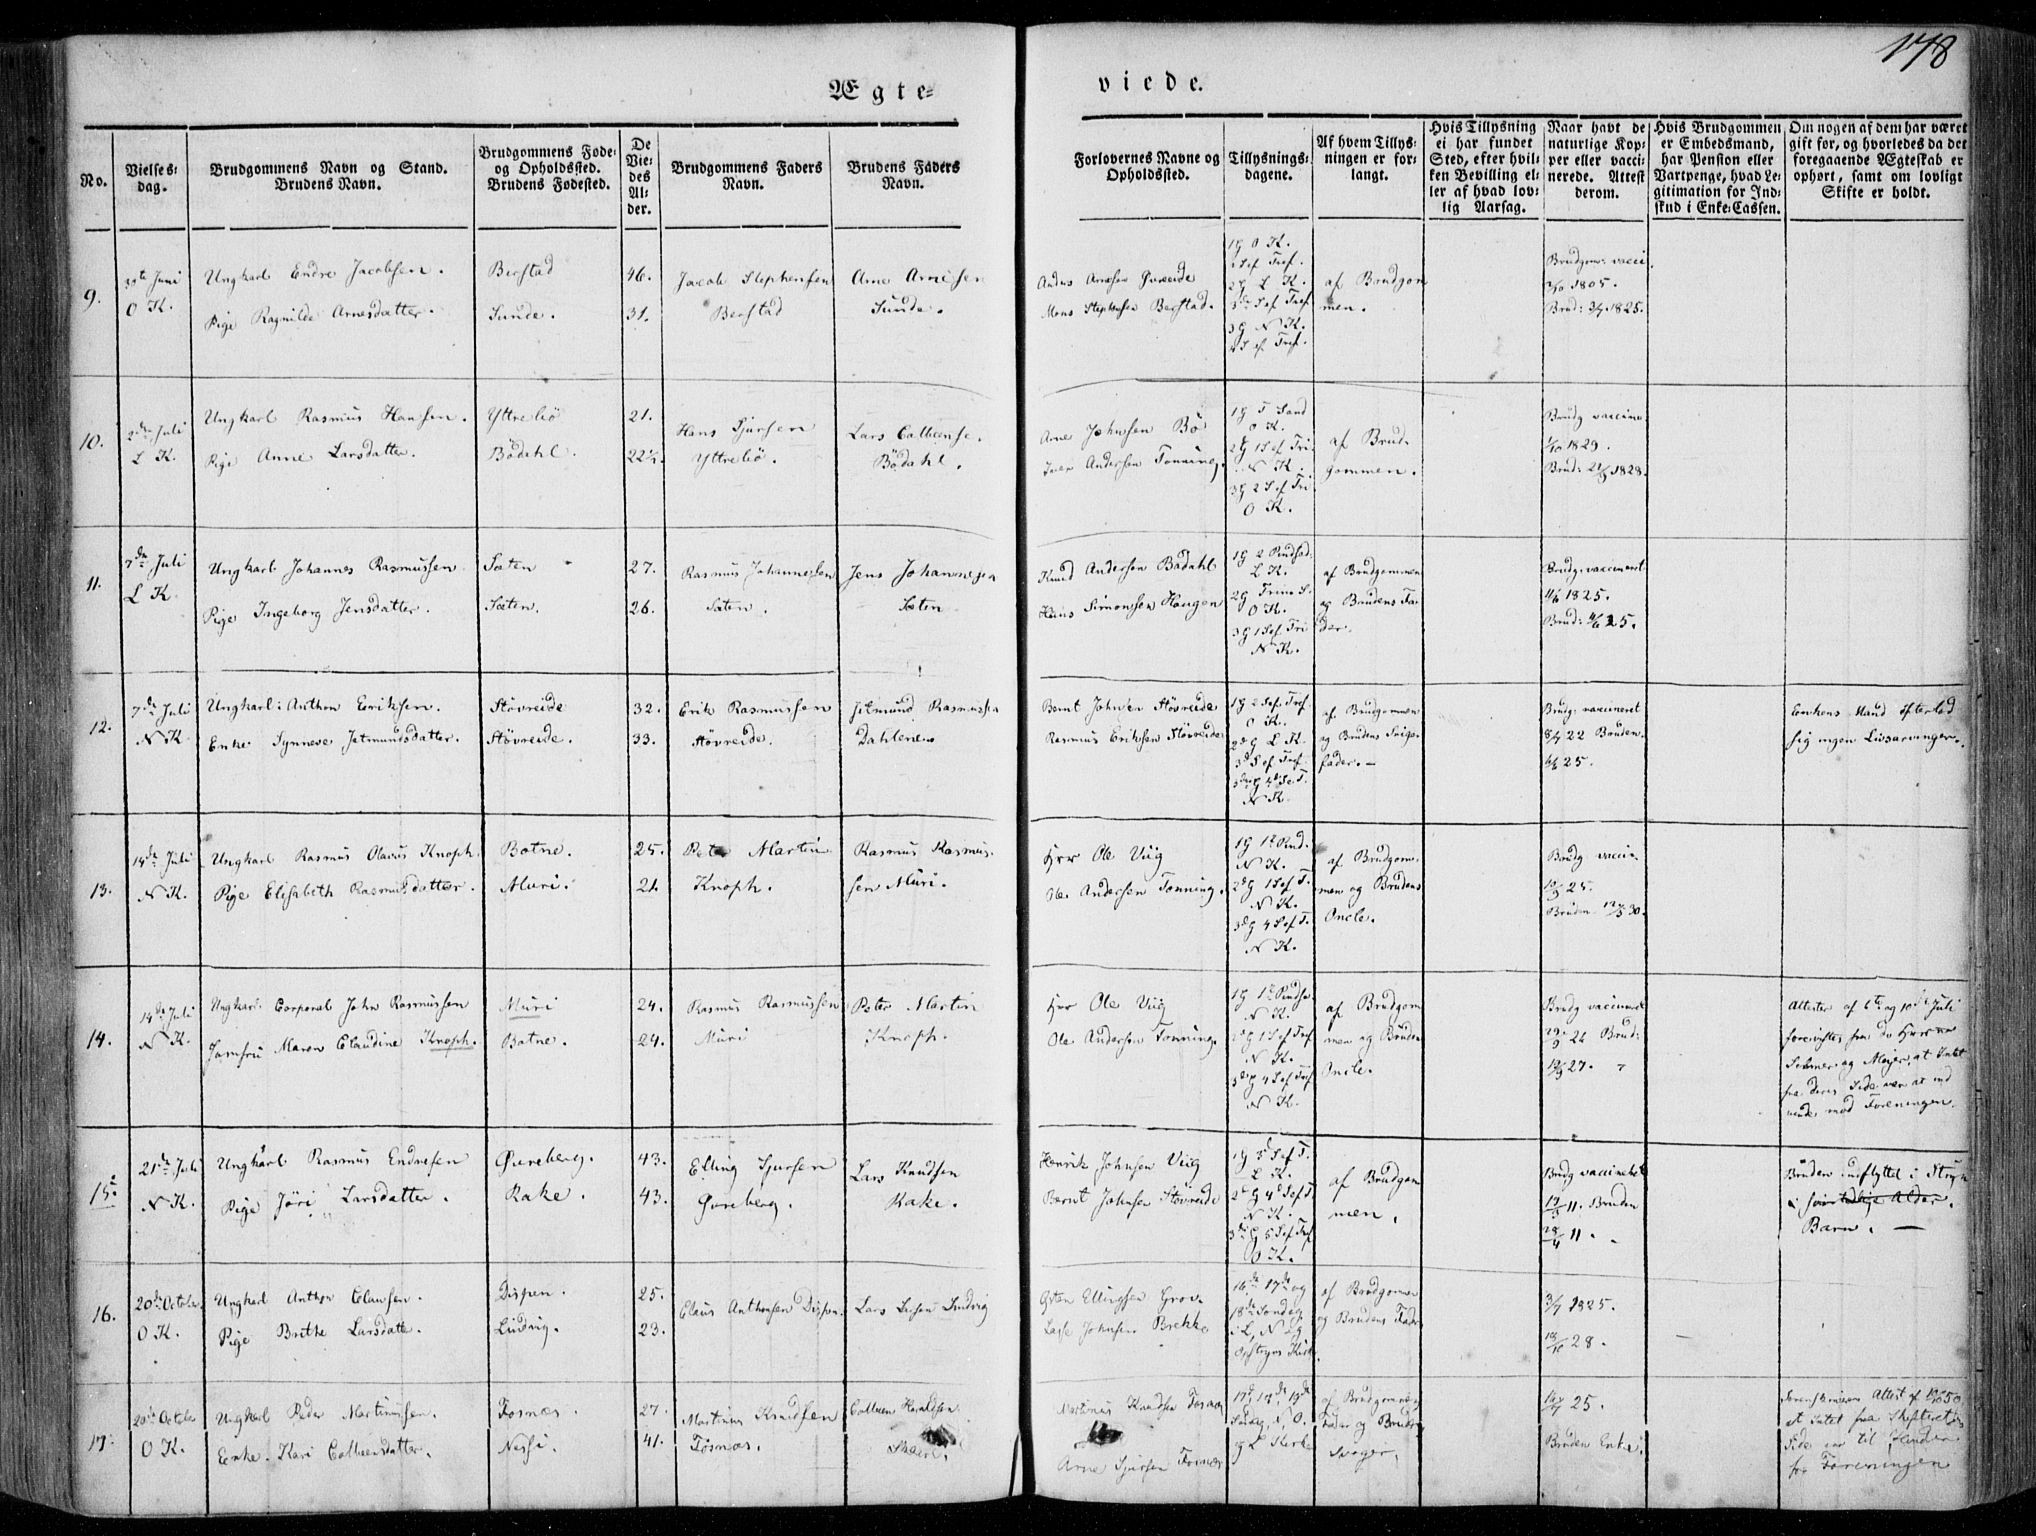 178
Ægte-
viede.
No.
Vielses-
dag.
Brudgommens Navn og Stand.
Brudens Navn.
Brudgommens Føde-
og Opholdssted.
Brudens Fødested.
De
Vie-
des
Al-
der.
Brudgommens Faders
Navn.
Brudens Faders
Navn.
Forlovernes Navne og
Opholdssted.
Tillysnings-
dagene.
Af hvem Tillys-
ningen er for-
langt.
Hvis Tillysning
ei har fundet
Sted, efter hvil-
ken Bevilling el-
ler af hvad lov-
lig Aarsag.
Naar havt de
naturlige Kop-
per eller vacci-
nerede. Attest
derom.
Hvis Brudgommen
er Embedsmand,
har Pension eller
Vartpenge, hvad Le-
gitimation for Ind-
skud i Enke-Cassen.
Om nogen af dem har været
gift før, og hvorledes da det
foregaaende Ægteskab er
ophørt, samt om lovligt
Skifte er holdt.
9.
Juni
O K.
Ungkarl Endre Jacobsen.
Pige Ragnilde Arnesdatter.
Berstad
Sunde.
46.
31.
Jacob Stephensen
Berstad
Arne Arnesen
Sunde.
Anders Arnesen
Mons Stephensen Berstad.
1g O K.
2g L K.
3g N K.
af Brudgom
men.
Brudgom: vacci.
1805.
Brud: 3/7 1825.
10.
2de Juli
L K.
Ungkarl Rasmus Hansen.
Pige Anne Larsdatter.
Yttreliö
Bödahl.
21.
22½.
Hans Sjursen
Yttreliö.
Lars
Bödahl.
Arne Johnsen Bö
Iver Andersen Tonning.
1g
O K.
2g 1 S ef Tri
N K.
3g 2 S ef Tri
O K.
af Brud-
gommen.
Brudg vaccine
1829.
Brud: 1828.
11.
7de Juli
L K.
Ungkarl Johannes Rasmussen
Pige Ingeborg Jensdatter.
Sæten
Sæten.
27.
26.
Rasmus Johannessen
Sæten.
Jens Johannesen
Sæten
Knud Andersen Bödahl
Hans Simonsen Haugen
1g 2
L K.
2g Trini S.
O K.
3g 1 S ef Tri
N K.
af Brudgommen
og Brudens Fa-
der.
Brudg: vaccineret
1825.
Brud: 25.
12.
7de Juli
N K.
Ungkarl: Anthon Eriksen.
Enke Synneve Jetmundsdatter.
Stövreide
Stövreide.
32.
33.
Erik Rasmussen
Stövreide.
Jetmund Rasmussen
Dahlene.
Bernt Johnsen Stövreide
Rasmus Eriksen Stövreide
1g 2 S ef Tref
O K.
2de g L K.
3 S ef Tref
N K.
af Brudgommen
og Brudens Sviger
fader. —
Brudg: vaccineret
8/7 22 Bruden
25.
Enkens Mand efterlod
sig ingen Livsarvinger.
13.
14de Juli
N K.
Ungkarl Rasmus Olaus Knoph.
Pige Elisabeth Rasmusdatter.
Botne.
Muri.
25.
21.
Peter Martin
Knoph.
Rasmus Rasmus-
sen Muri.
Hrr Ole Viig
Ole Andersen Tonning.
N K.
2de g 1 S ef T.
N K.
3de g 4 S ef T.
N K.
af Brudgom-
men og Brudens
Oncle.
Brudg vaccin.
25.
Bruden 30.
14.
14de Juli
N K.
Ungkarl: Corporal John Rasmussen
Jomfru Maren Claudine Knoph.
Muri
Botne.
24.
24.
Rasmus Rasmussen
Muri
Peter Martin
Knoph.
Hrr Ole Viig
Ole Andersen Tonning.
N K.
2de g 1 S ef Tref
N K.
3de g 4 S ef Tref
N K.
af Brudgom
men og Bruden
Oncle.
Brudg vaccineret
Brud:
27.
Attester af 6te og 10de Juli
forevistes fra Hrrer
og Meyer, at Intet
fra deres Side var at ind
vende mod Foreningen.
15.
21de Juli
N K.
Ungkarl Rasmus Endresen
Pige Jöri Larsdatter.
Övreberg.
Rake.
43.
43.
Elling Sjursen
Övreberg.
Lars Knudsen
Rake.
Henrik Johnsen Viig
Bernt Johnsen Stövreide
1g 3 S ef T.
L K.
2de g 4de S ef T.
N K.
3de g 5 S ef Tref
O K.
af Brudgom
men.
Brudg vaccineret
11. Bruden
11.
Bruden indflyttet i Stryn
i Alder.
Barn. —
16.
20de October
O K.
Ungkarl Anthon Clausen.
Pige Brithe Larsdatter.
Dispen.
Lindvig.
25.
23.
Claus Anthonsen Dispen.
Lars Larsen Lindvig
Ellingsen Grov.
Lasse Johnsen Brekke
16de 17de og
18de Søndag
i L, N og
Opstryns Kirke.
af Brudgommen
og Brudens Fader
3/7 1825.
28.
17.
20de October
O K.
Ungkarl Peder Martinussen.
Enke Kari Colbeensdatter.
Fosnæs.
Nessi.
27.
41.
Martinus Knudsen
Fosnæs.
Colbeen Haraldsen
Skaare.
Martinus Knudsen Fosnæs
Arne Sjursen Fosnæs
17de, 18de, 19de
Søndag N, O.
og L Kirke
af Brudgommens
Fader og Brudens
Svoger.
25.
Bruden Enke.
Attest af
at Intet fra Skifterettens
Side var til Hinder
for Foreningen